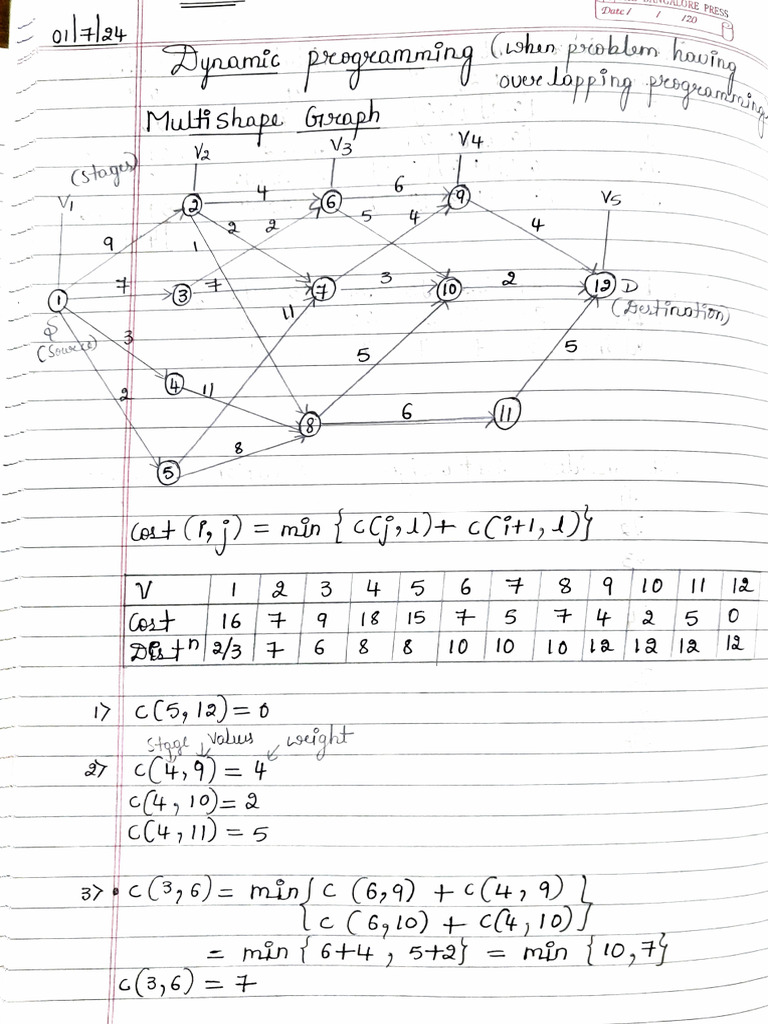 BANGALORE PRESS
Date / / /20
01/7/24
Dynamic programming (when problem having
overlapping programming
Multishape Graph
(Stages)
V1
V2
V3
V4
V5
4
6
2
6
9
9
2
2
5
4
4
1
7
3
7
7
3
10
2
12
D
(Destination)
1
S
(Source)
11
3
2
4
11
5
5
8
6
11
8
5
cost (i, j) = min { c(j, l) + c(i+1, l)}
V 1 2 3 4 5 6 7 8 9 10 11 12
Cost 16 7 9 18 15 7 5 7 4 2 5 0
Distn 2/3 7 6 8 8 10 10 10 12 12 12 12
1> c(5, 12) = 0
stage values weight
2> c(4, 9) = 4
c(4, 10) = 2
c(4, 11) = 5
3> • c(3, 6) = min { c (6,9) + c(4, 9) }
{ c (6,10) + c(4, 10) }
= min { 6+4 , 5+2} = min {10, 7}
c(3, 6) = 7